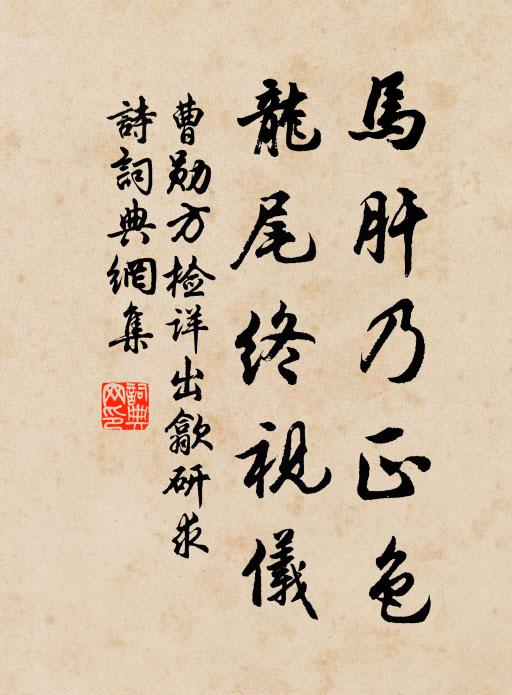 馬肝乃正色
龍尾終視儀
曹勋方检详出歙研求
詩詞典網集
詞典
网印